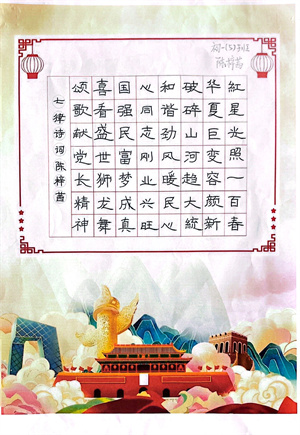 陈梓茜
紅星光照一百春
华夏巨变容颜新
破碎山河趋大統
和谐劲风暖民心
心同志刚业兴旺
国强民富梦成真
喜看盛世狮龙舞
颂歌献党长精神
七律诗词陈梓茜